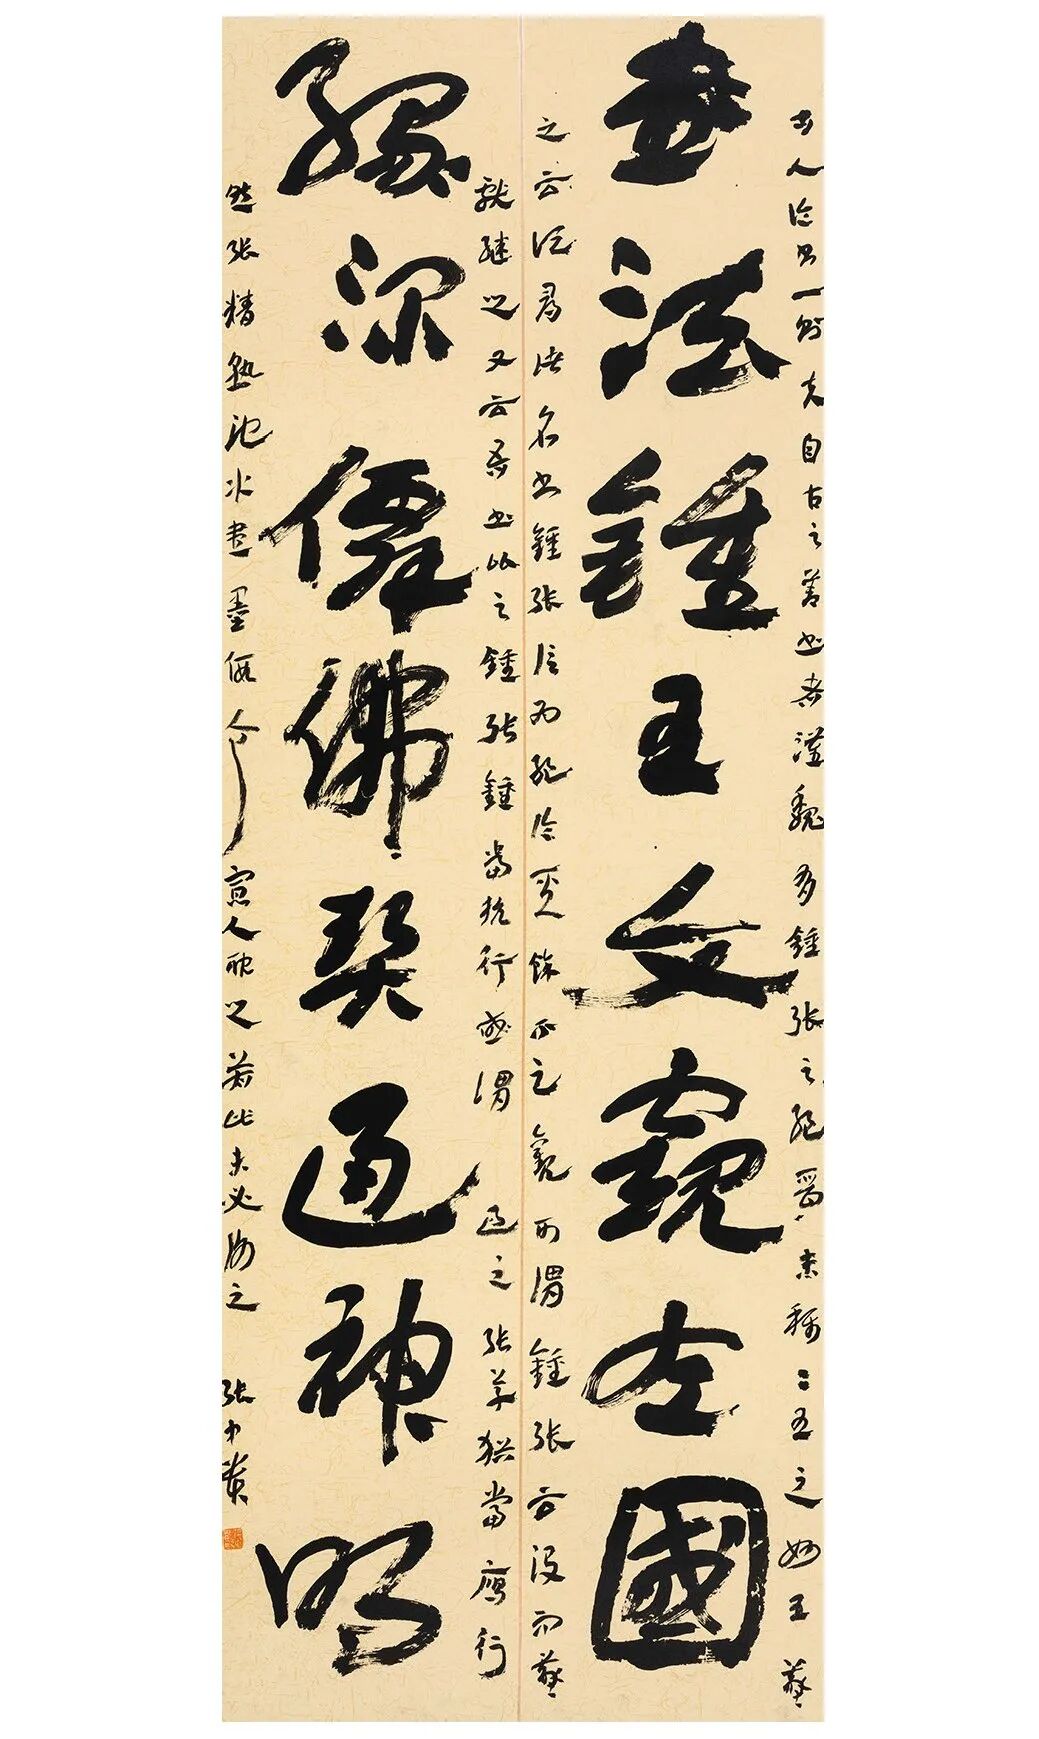 古人論書一則夫自古之善書者漢魏有鍾張之絕晉末稱二王之妙王羲
書法鍾王文窺左國
之云頃尋諸名書鍾張信為絕倫其餘不足觀可謂鍾張云沒而羲
獻繼之又云吾書比之鍾張鍾當抗行或謂過之張草猶當雁行
緣深僊佛契通神明
然張精熟池水盡墨假令寡人耽之若此未必謝之 張